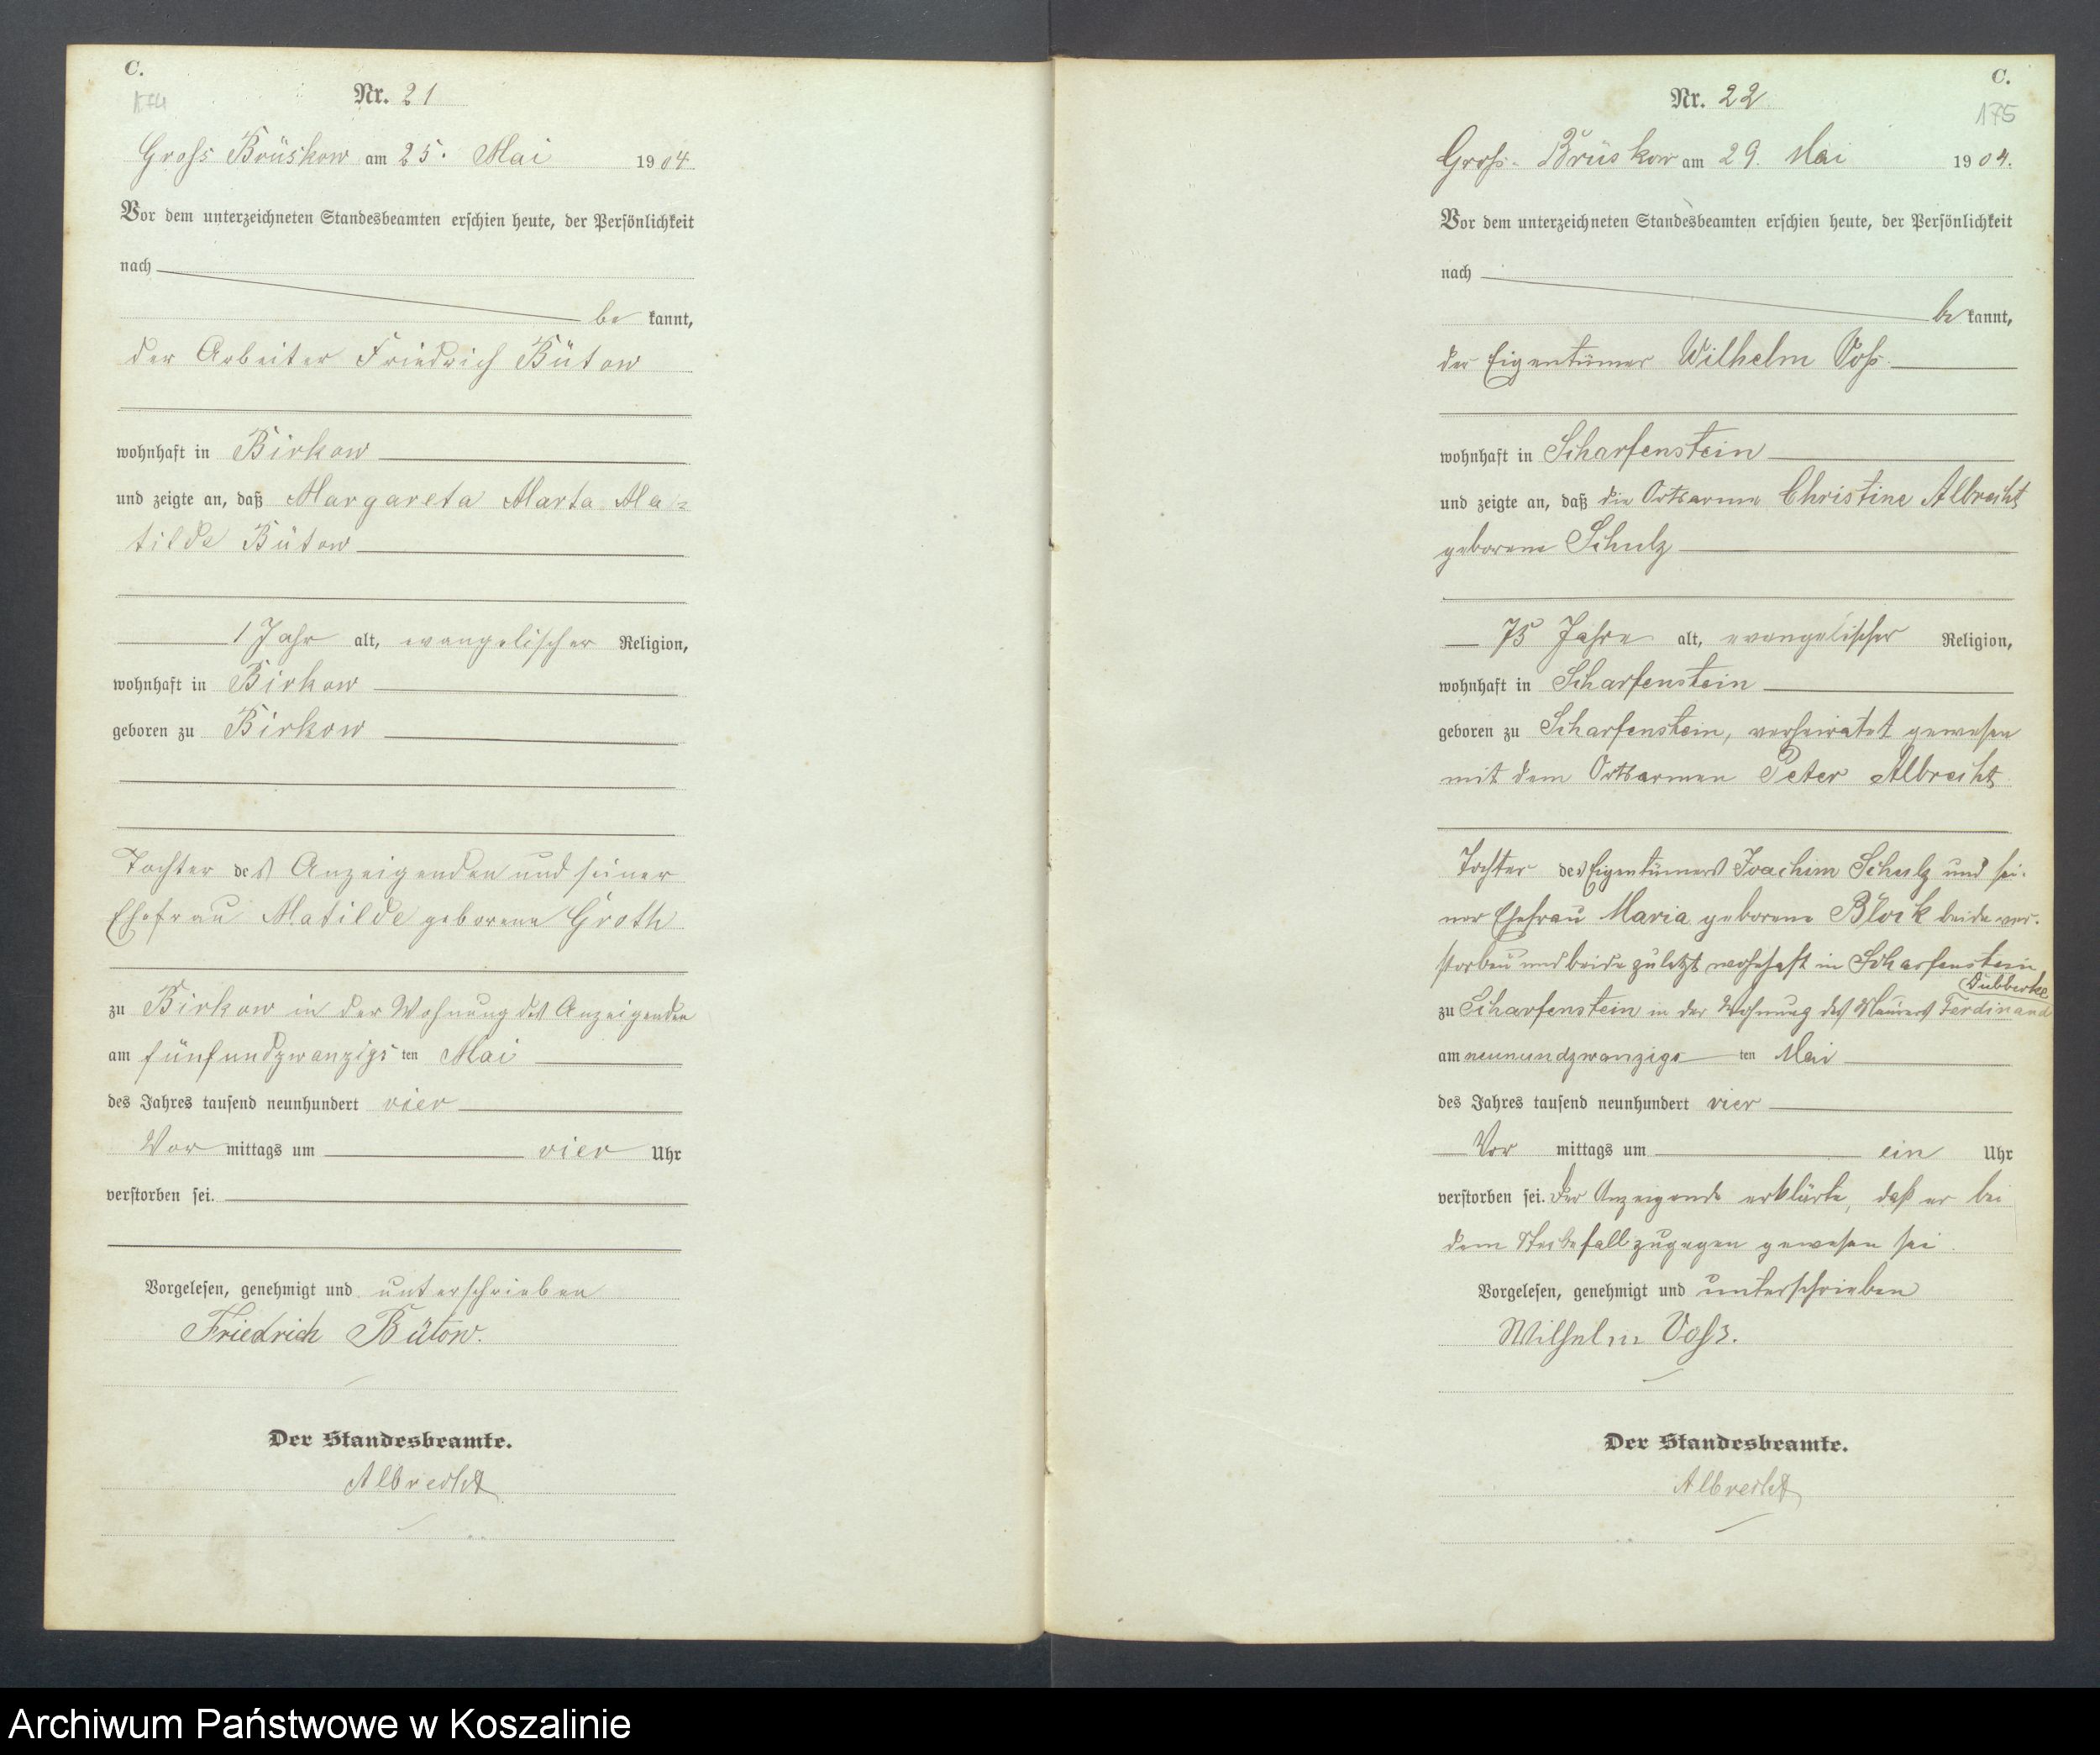 C.
Nr. 21
Gross Brüskow am 25. Mai 1904
Vor dem unterzeichneten Standesbeamten erschien heute, der Persönlichkeit
nach
be kannt,
der Arbeiter Friedrich Bütow
wohnhaft in Birkow
und zeigte an, daß Margareta Marta Ma-
tilde Bütow
1 Jahr alt, evangelischer Religion,
wohnhaft in Birkow
geboren zu Birkow
Tochter des Anzeigenden und seiner
Ehefrau Matilde geborene Groth
zu Birkow in der Wohnung des Anzeigenden
am fünfundzwanzigs ten Mai
des Jahres tausend neunhundert vier
Vor mittags um vier Uhr
verstorben sei.
Vorgelesen, genehmigt und unterschrieben
Friedrich Bütow.
Der Standesbeamte.
Albrecht
C.
175
Nr. 22
Groß-Brüskow am 29. Mai 1904.
Vor dem unterzeichneten Standesbeamten erschien heute, der Persönlichkeit
nach
be kannt,
der Eigentümer Wilhelm Voß
wohnhaft in Scharfenstein
und zeigte an, daß die Ortsarme Christine Albrecht
geborene Schulz
75 Jahre alt, evangelischer Religion,
wohnhaft in Scharfenstein
geboren zu Scharfenstein, verheiratet gewesen
mit dem Ortsarmen Peter Albrecht
Tochter des Eigentümers Joachim Schulz und sei-
ner Ehefrau Maria geborene Block beide ver-
storben und beide zuletzt wohnhaft in Scharfenstein
Dubberke
zu Scharfenstein in der Wohnung des Maurers Ferdinand
am neunundzwanzigs ten Mai
des Jahres tausend neunhundert vier
Vor mittags um ein Uhr
verstorben sei. Der Anzeigende erklärte, daß er bei
dem Sterbefall zugegen gewesen sei.
Vorgelesen, genehmigt und unterschrieben
Wilhelm Voß.
Der Standesbeamte.
Albrecht
Archiwum Państwowe w Koszalinie